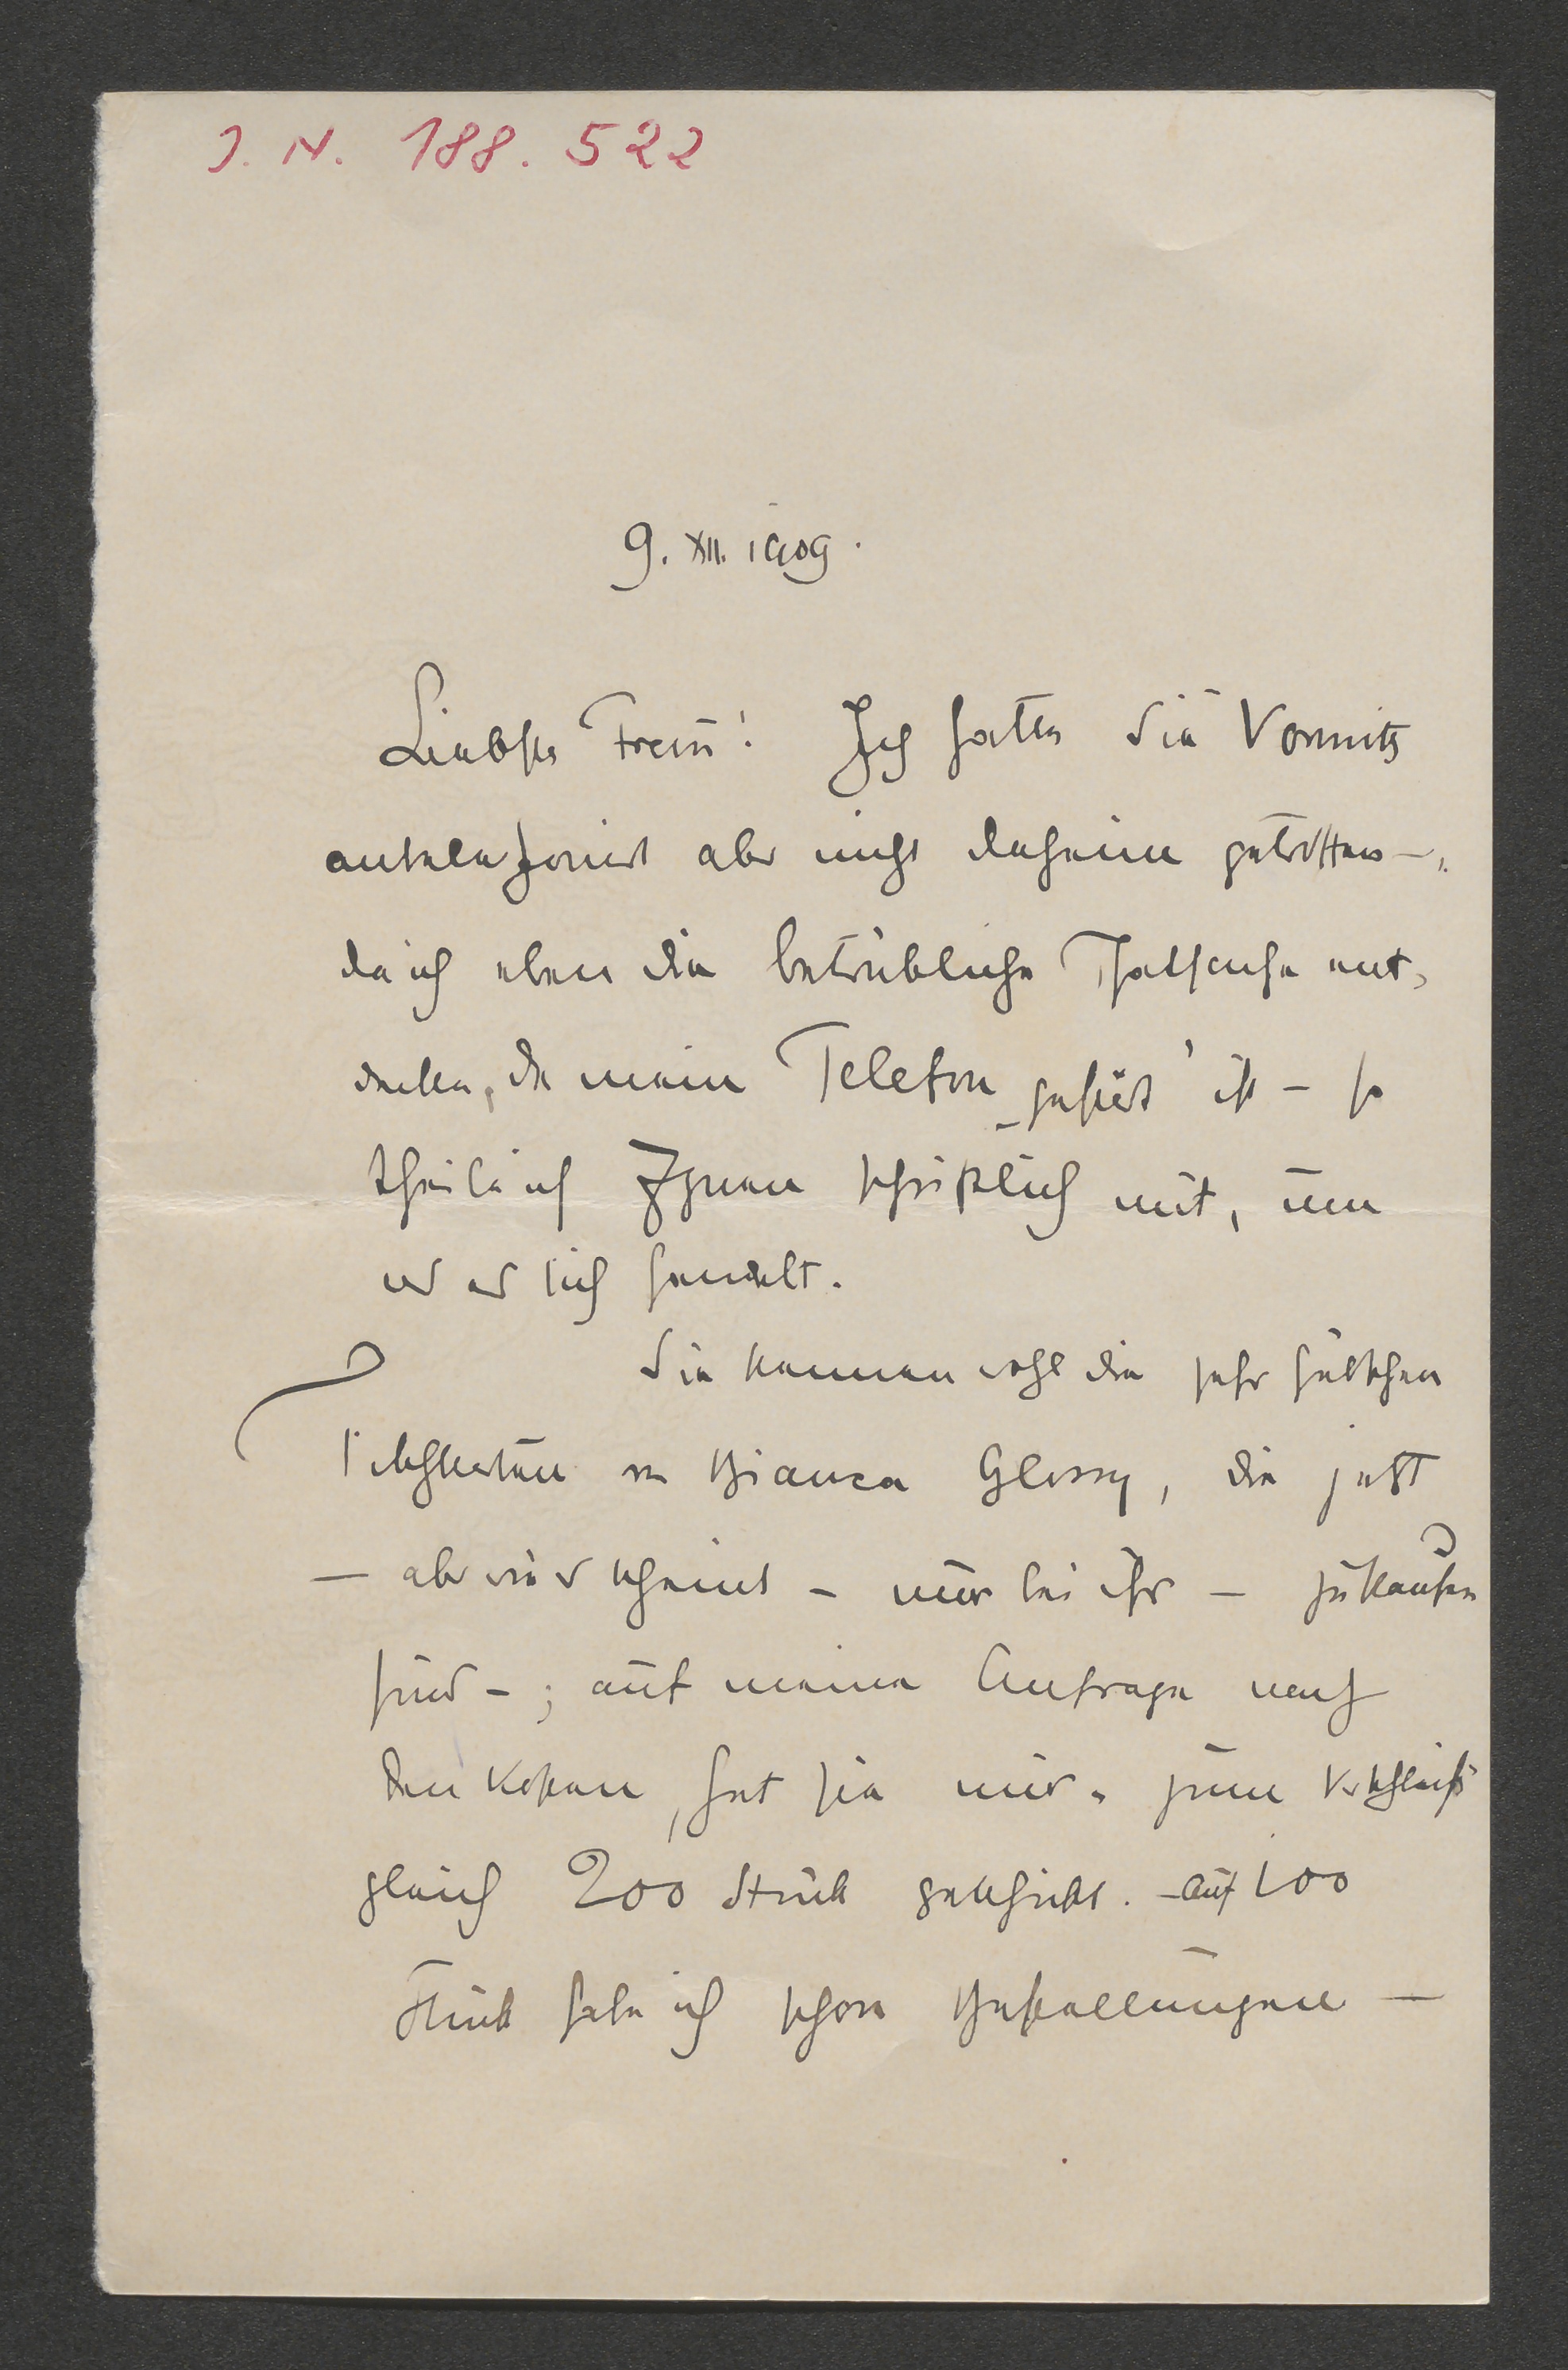 J. N. 188.522
9. XII. 1909.
Liebster Freund! Ich hatte Sie Vormitt
antelefoniert aber nicht daheim getroffen –,
da ich eben die betrübliche Thatsache ent-
decke, daß mein Telefon gestört ist – so
theile ich Ihnen schriftlich mit, um
was es sich handelt.
Sie kennen wohl die sehr hübschen
von Bianca Glossy, die jetzt
– aber wie es scheint – nur bei ihr – zu kaufen
sind –; auf meine Anfrage nach
den Kosten, hat sie mir zum Verschleiß
gleich 200 Stück geschickt. – auf 100
Stück habe ich schon Bestellungen –